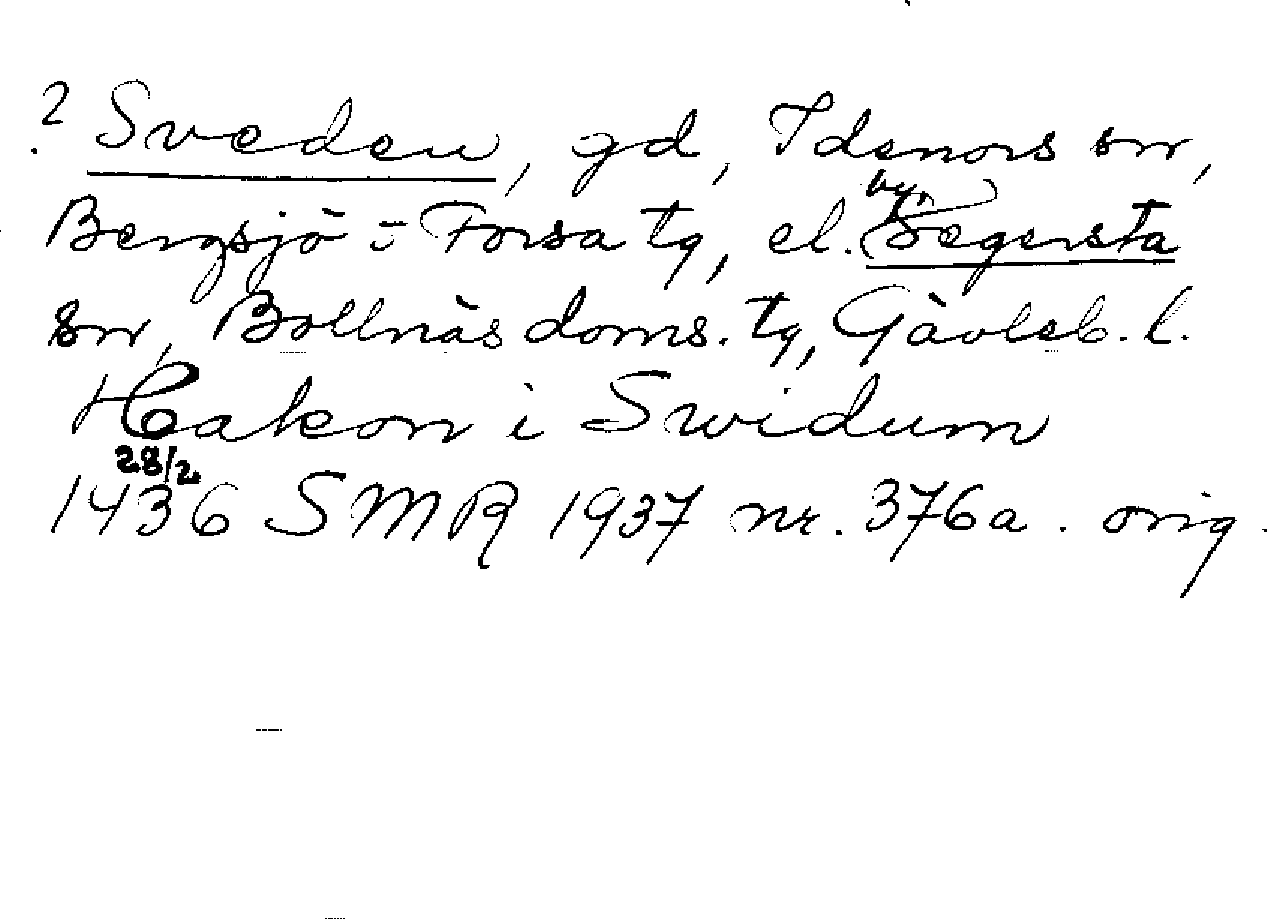 ? Sveden, gd, Idenors sn,
Bergsjö o Forsa tg, el. by, Segersta
sn, Bollnäs doms. tg, Gävleb. l.
Hakon i Swidum
28/2
1436 SMR 1937 nr. 376a. orig.